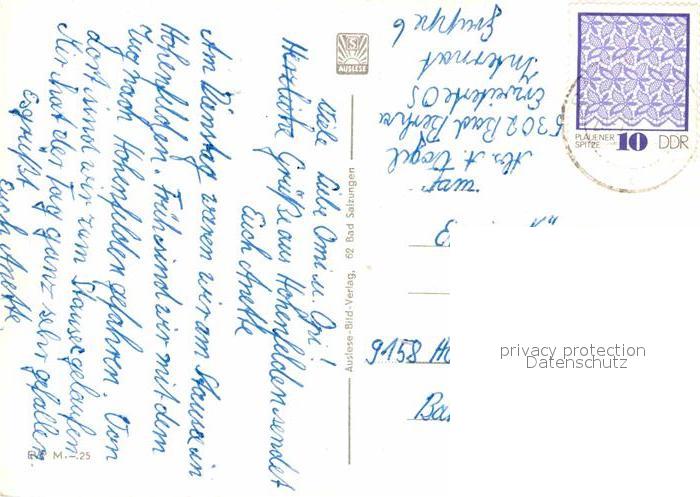 Liebe Omi u. Opi!
Herzliche Grüße aus Hohenfelden sendet
Euch Anette
Am Dienstag waren wir am Stausee in
Hohenfelden. Früh sind wir mit dem
Zug nach Hohenfelden gefahren. Von
dort sind wir zum Stausee gelaufen.
Mir hat der Tag ganz sehr gefallen.
Es grüßt
Euch Anette.
EVP M. -.25
S
AUSLESE
Auslese-Bild-Verlag, 62 Bad Salzungen
Abs. A. Vogel
5302 Bad Berka
Erweiterte OS
Internat
Gruppe 6
PLAUENER
SPITZE
10
DDR
9158
privacy protection
Datenschutz